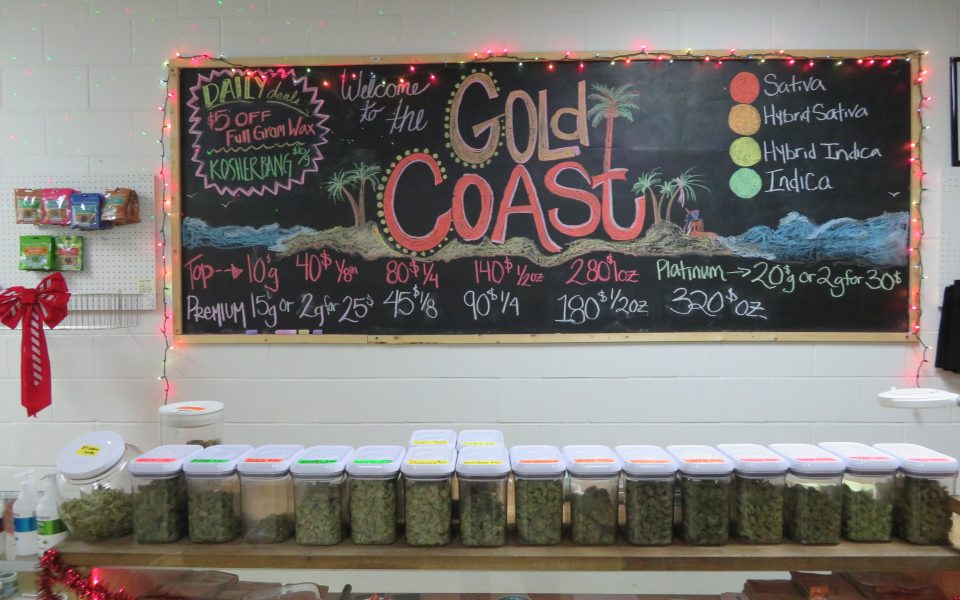 DAILY deals
$5 OFF
Full Gram Wax
KOSHERBANG
Welcome
to the
GOLD
COAST
Sativa
Hybrid Sativa
Hybrid Indica
Indica
Top --> 10$g 40$ 1/8th 80$ 1/4 140$ 1/2oz 280$ 1oz
Platinum → 20$g or 2g for 30$
PREMIUM 15$g or 2g for 25$ 45$ 1/8 90$ 1/4 180$ 1/2oz 320$ oz